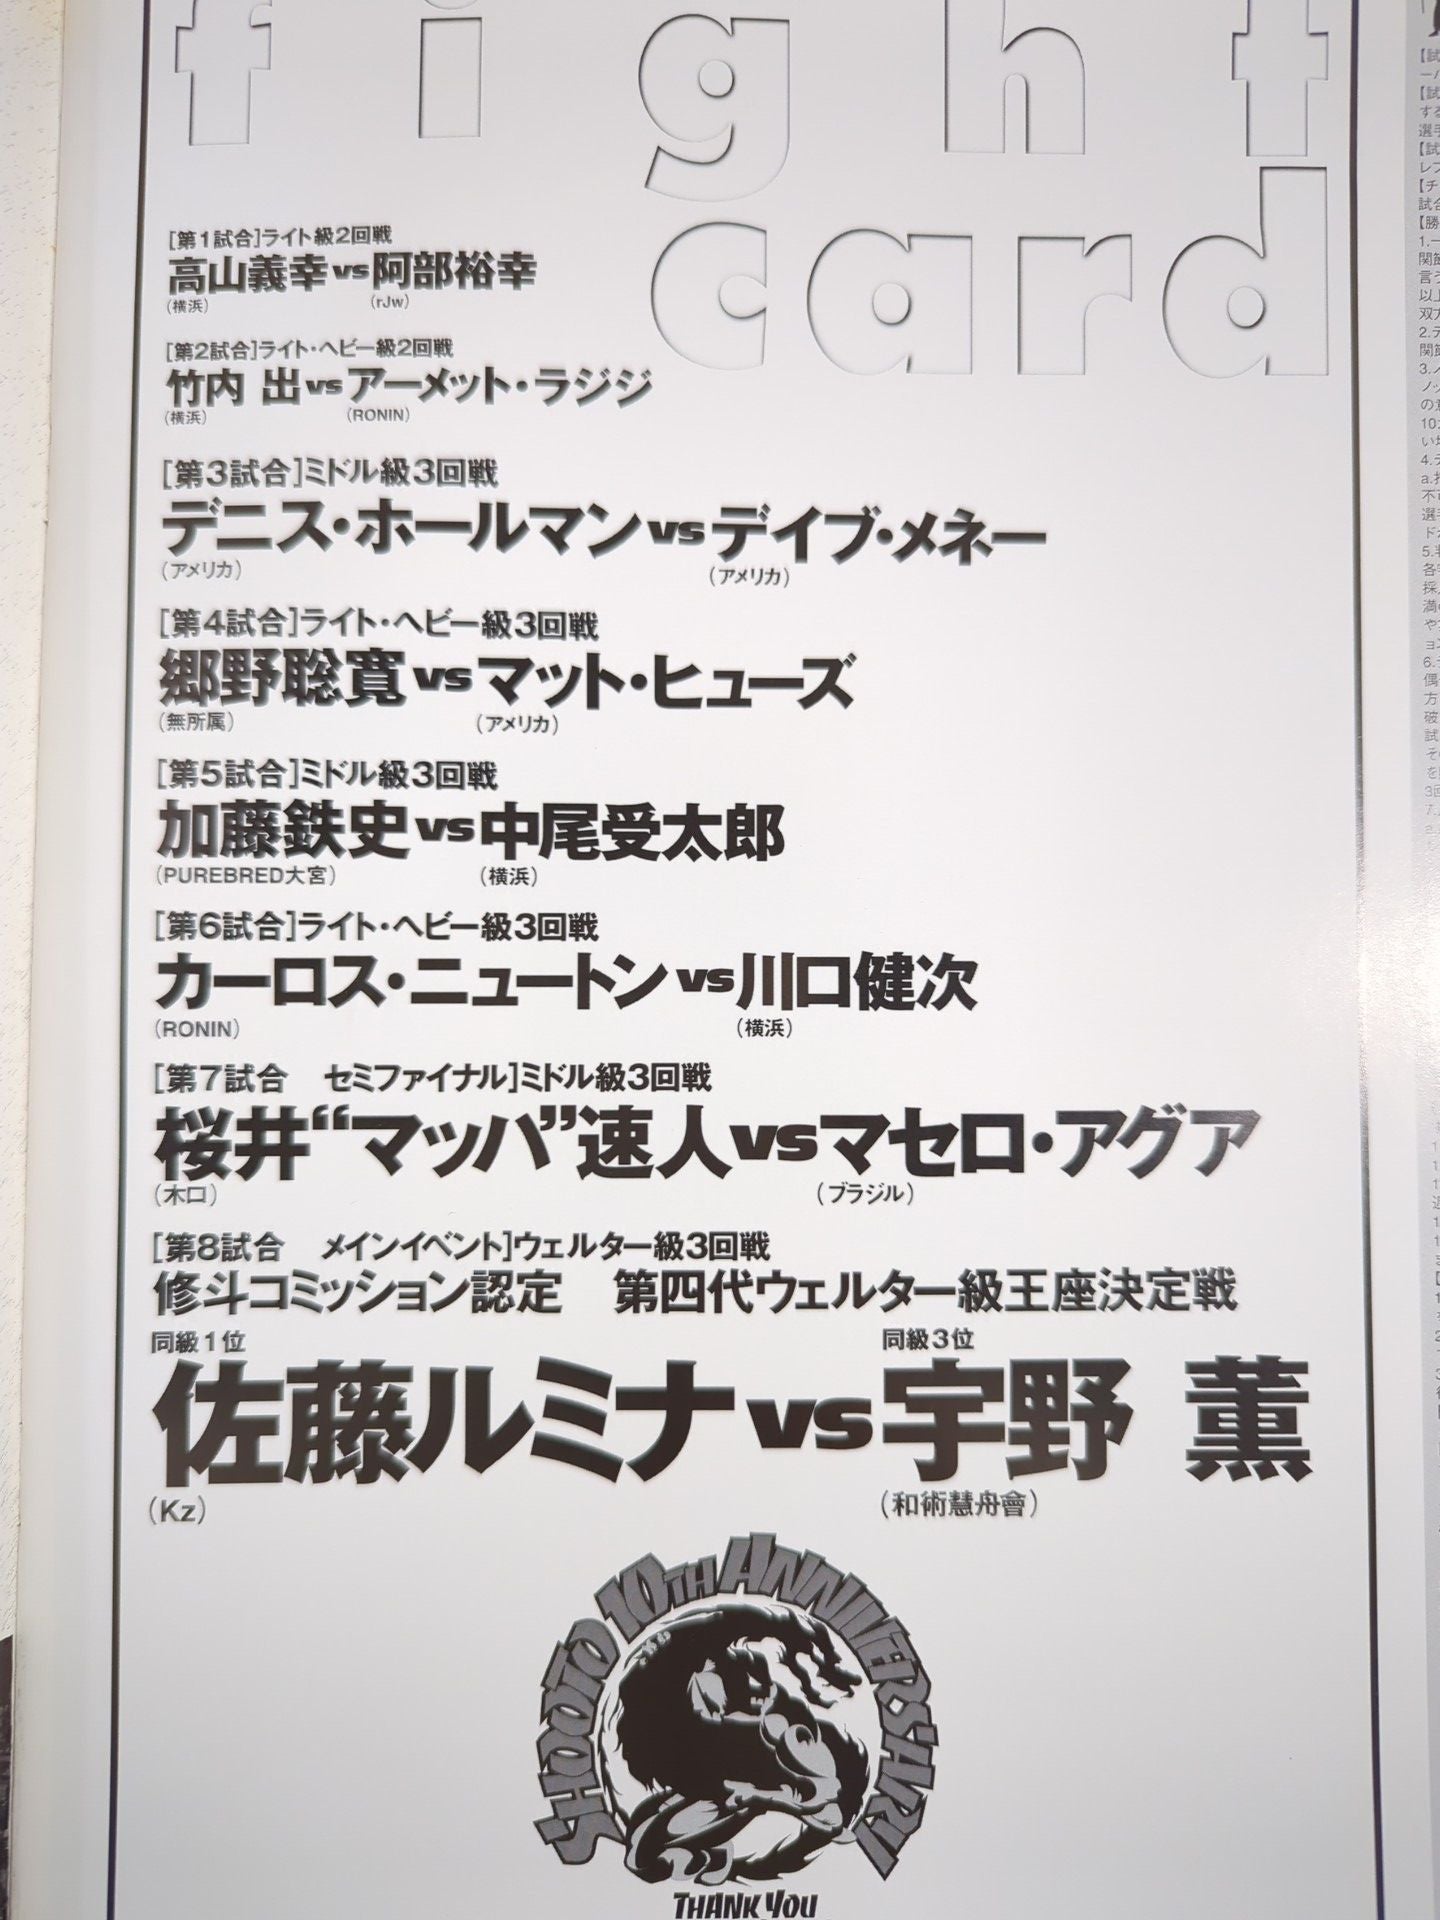 fight
card
[第1試合]ライト級2回戦
高山義幸vs阿部裕幸
(横浜) (rJw)
[第2試合]ライト・ヘビー級2回戦
竹内 出vsアーメット・ラジジ
(横浜) (RONIN)
[第3試合]ミドル級3回戦
デニス・ホールマンvsデイブ・メネー
(アメリカ) (アメリカ)
[第4試合]ライト・ヘビー級3回戦
郷野聡寛vsマット・ヒューズ
(無所属) (アメリカ)
[第5試合]ミドル級3回戦
加藤鉄史vs中尾受太郎
(PUREBRED大宮) (横浜)
[第6試合]ライト・ヘビー級3回戦
カーロス・ニュートンvs川口健次
(RONIN) (横浜)
[第7試合　セミファイナル]ミドル級3回戦
桜井“マッハ”速人vsマセロ・アグア
(木口) (ブラジル)
[第8試合　メインイベント]ウェルター級3回戦
修斗コミッション認定　第四代ウェルター級王座決定戦
同級1位 同級3位
佐藤ルミナvs宇野 薫
(Kz) (和術慧舟會)
SHOOTO 10TH ANNIVERSARY
THANK YOU